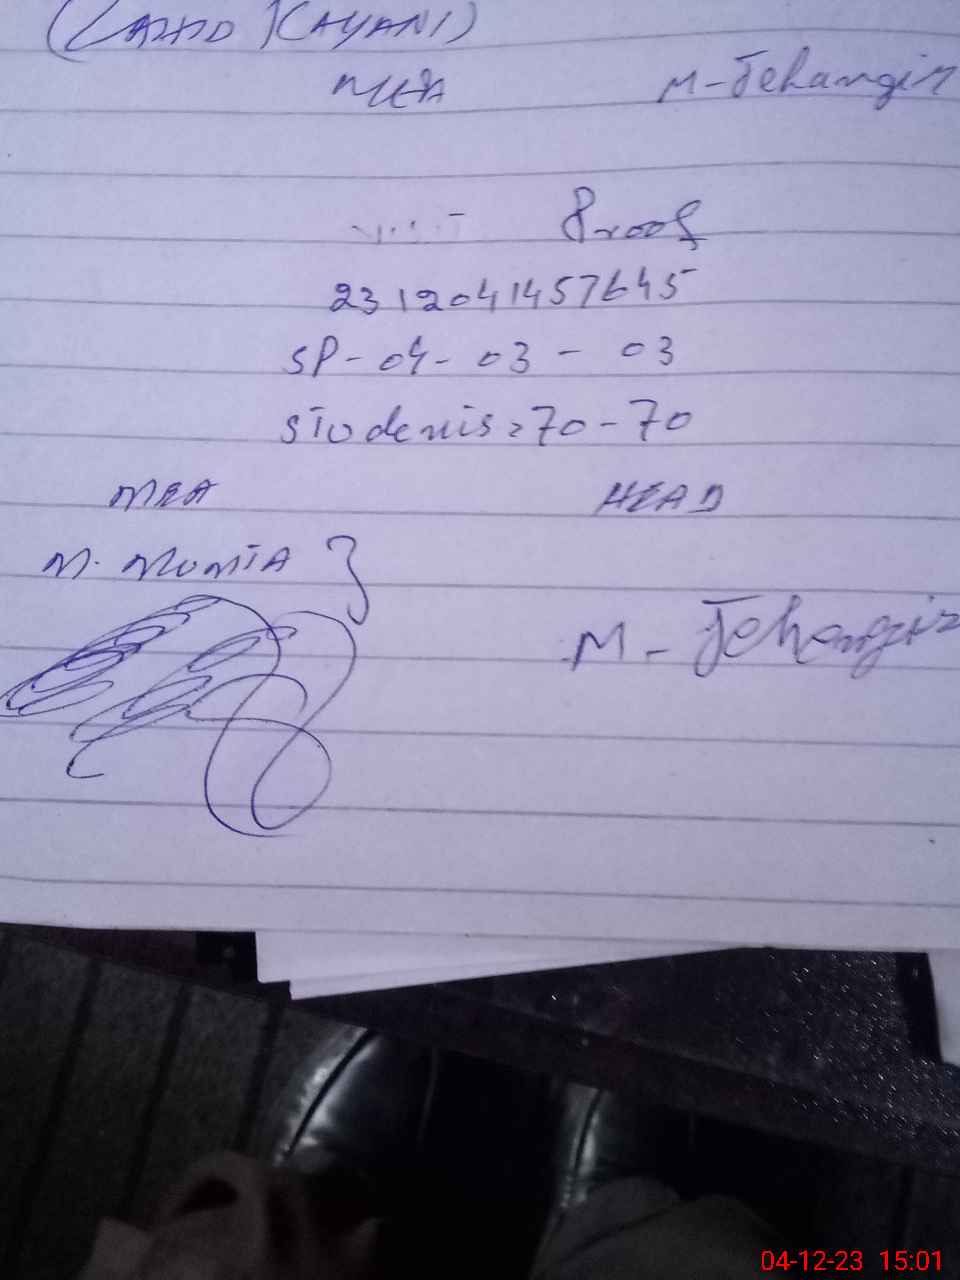 KAYANI)
MEA M-Jehangir
Proof
2312041457645
SP-04-03-03
Students=70-70
MEA HEAD
M. Mumta }
M-Jehangir
04-12-23 15:01